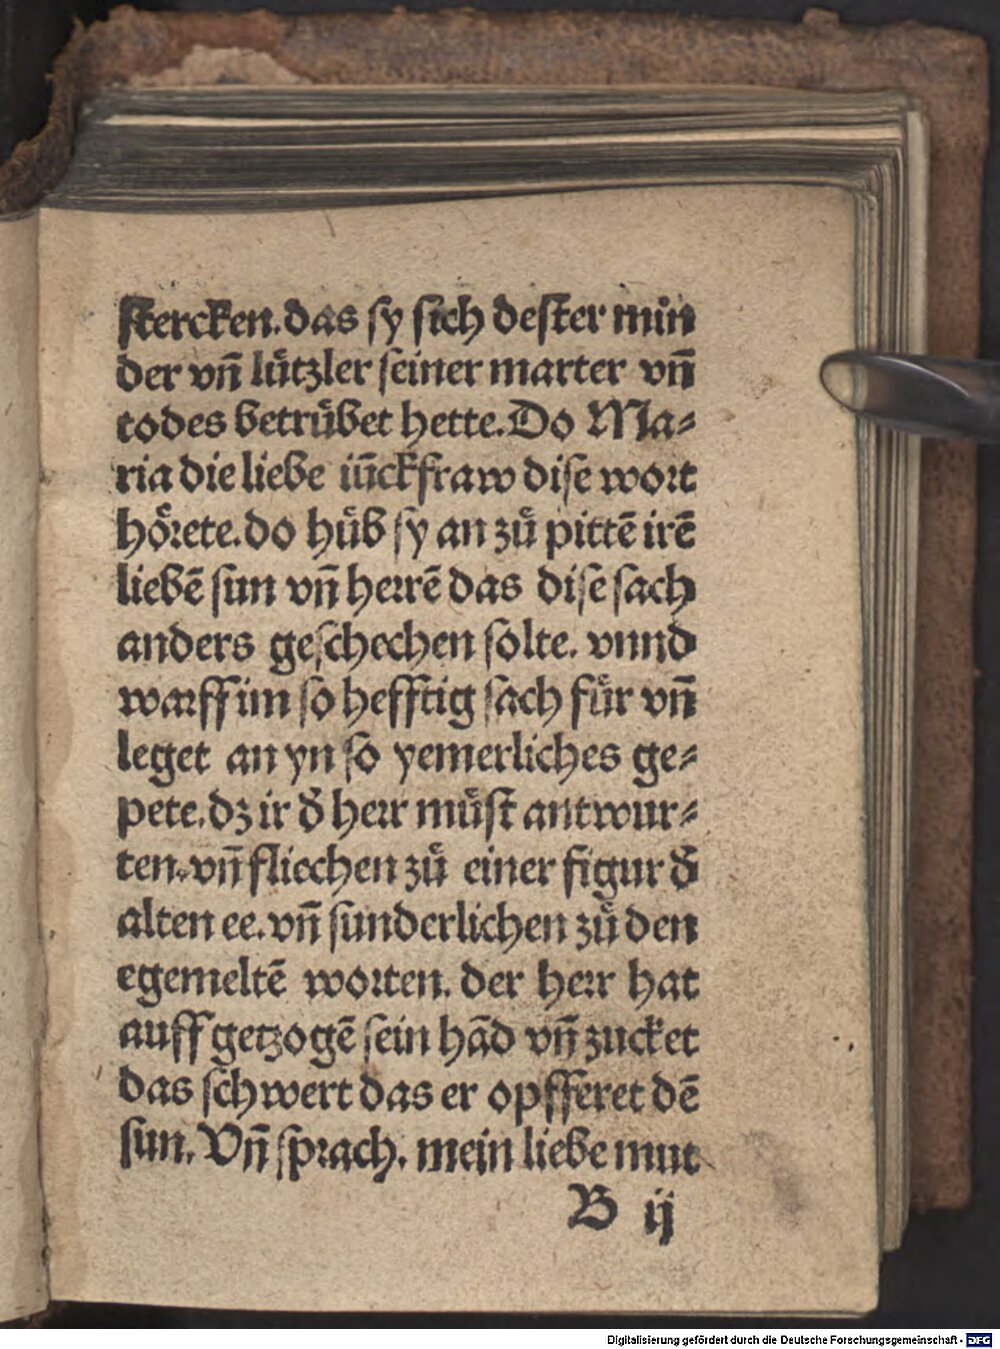 stercken. das sy sich dester min
der vñ lützler seiner marter vñ
todes betrůbet hette. Do Ma⸗
ria die liebe iũckfraw dise wort
hôrete. do hůb sy an zů pittẽ irẽ
liebẽ sun vñ herrẽ das dise sach
anders geschechen solte. vnnd
warff im so hefftig sach für vñ
leget an yn so yemerliches ge⸗
pete. dz ir đ herr můst antwur⸗
ten. vñ fliechen zů einer figur đ
alten ee. vñ sunderlichen zů den
egemeltẽ worten. der herr hat
auff getzogẽ sein hãd vñ zucket
das schwert das er opfferet dẽ
sun. Vñ sprach. mein liebe mut
B ij
Digitalisierung gefördert durch die Deutsche Forschungsgemeinschaft - DFG